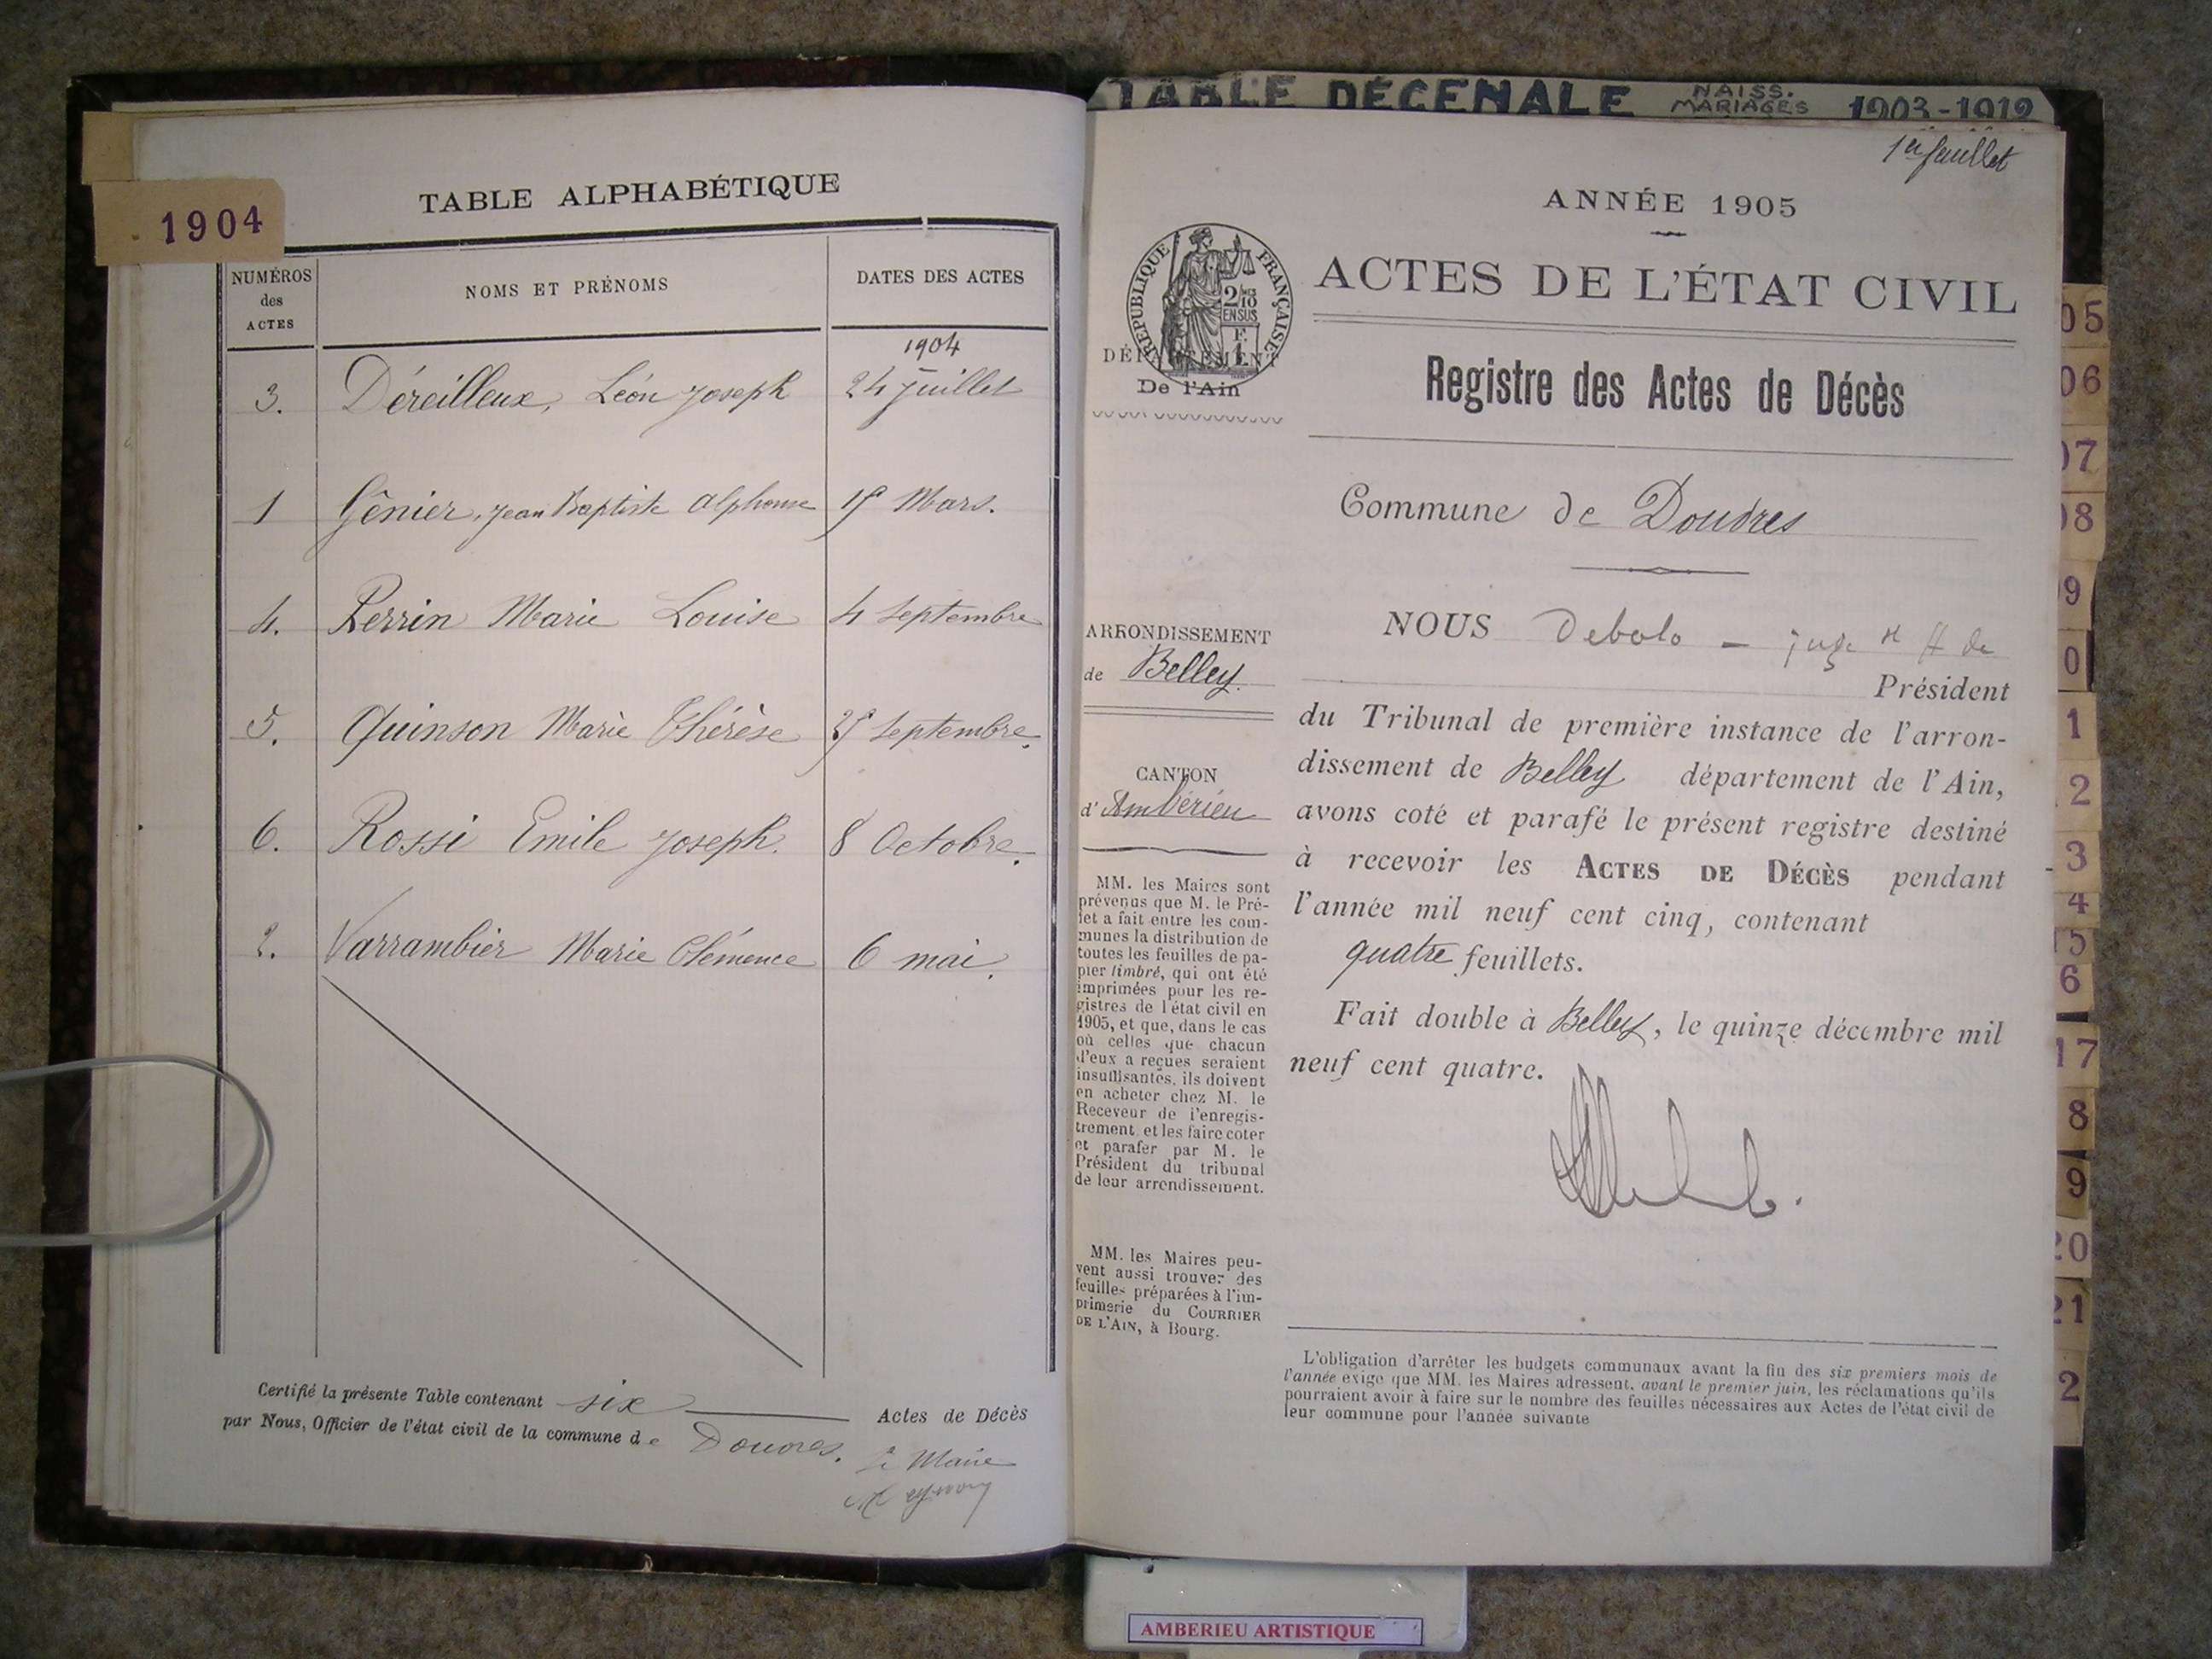 TABLE DÉCENALE NAISS. MARIAGES 1903-1912
1904
TABLE ALPHABÉTIQUE
NUMÉROS des ACTES
NOMS ET PRÉNOMS
DATES DES ACTES
1904
3. Déreilleux, Léon Joseph 24 Juillet
1 Gênier, Jean Baptiste Alphonse Mars.
4. Perrin Marie Louise 4 Septembre
5. Quinson Marie Thérèse Septembre.
6. Rossi Emile Joseph. 8 Octobre.
2. Varrambier Marie Clémence 6 mai.
Certifié la présente Table contenant six Actes de Décès
par Nous, Officier de l'état civil de la commune de Douvres.
Le Maire
1er feuillet
ANNÉE 1905
ACTES DE L'ÉTAT CIVIL
RÉPUBLIQUE FRANÇAISE
2/10
EN SUS
DÉPARTEMENT
De l'Ain
Registre des Actes de Décès
Commune de Douvres
ARRONDISSEMENT
de Belley.
CANTON
d'Ambérieu
MM. les Maires sont
prévenus que M. le Pré-
fet a fait entre les com-
munes la distribution de
toutes les feuilles de pa-
pier timbré, qui ont été
imprimées pour les re-
gistres de l'état civil en
1905, et que, dans le cas
où celles que chacun
d'eux a reçues seraient
insuffisantes, ils doivent
en acheter chez M. le
Receveur de l'enregis-
trement, et les faire coter
et parafer par M. le
Président du tribunal
de leur arrondissement.
MM. les Maires peu-
vent aussi trouver des
feuilles préparées à l'im-
primerie du COURRIER
DE L'AIN, à Bourg.
NOUS Debolo - juge de
Président
du Tribunal de première instance de l'arron-
dissement de Belley département de l'Ain,
avons coté et parafé le présent registre destiné
à recevoir les ACTES DE DÉCÈS pendant
l'année mil neuf cent cinq, contenant
quatre feuillets.
Fait double à Belley, le quinze décembre mil
neuf cent quatre.
L'obligation d'arrêter les budgets communaux avant la fin des six premiers mois de
l'année exige que MM. les Maires adressent, avant le premier juin, les réclamations qu'ils
pourraient avoir à faire sur le nombre des feuilles nécessaires aux Actes de l'état civil de
leur commune pour l'année suivante
05
06
07
08
9
0
1
2
3
4
15
6
17
8
9
20
21
2
AMBERIEU ARTISTIQUE